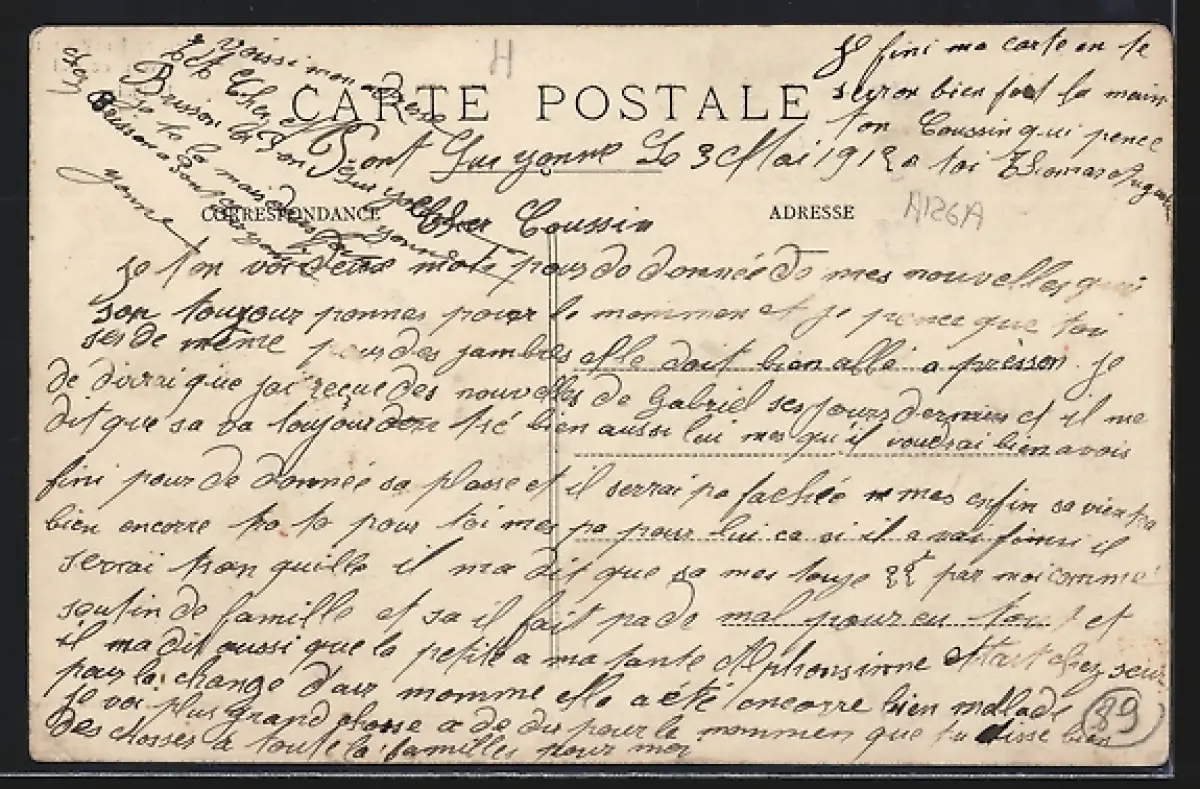 H
CARTE POSTALE
Je fini ma carte en te
seron bien fort la main
ton Coussin qui pence
a toi Thomas
Voissi mon adresse
Chez
Brisson
Yonne
Pont Sur yonne Le 3 Mai 1912
CORRESPONDANCE
ADRESSE
A126A
Cher Coussin
je t'en voi deux mots pour de donnée de mes nouvelles qui
son toujour ponnes pour le mommen et je pence que toi
ses de même pour des jambes elle doit bien allé a prèsson je
de dirrai que jai reçue des nouvelles de Gabriel ses jours derniers et il me
dit que sa va toujour tré bien aussi lui mes qu'il voudrai bien avois
fini pour de donnée sa plasse et il serrai pa fachée mes enfin sa viendra
bien encorre to to pour toi mes pa pour lui ca si il a vai finni il
serrai tranquille il ma dit que sa mes touje par moi comme
soutin de famille et sa il fait pa de mal pour en tout et
il ma dit aussi que la petite a ma tante Alphonsinne etait chez
pour la change d'air momme elle a été encorre bien mallade
je voi plus grand chosse a de dir pour le mommen que tu disse bien
des chosses a toute la familles pour moi
89